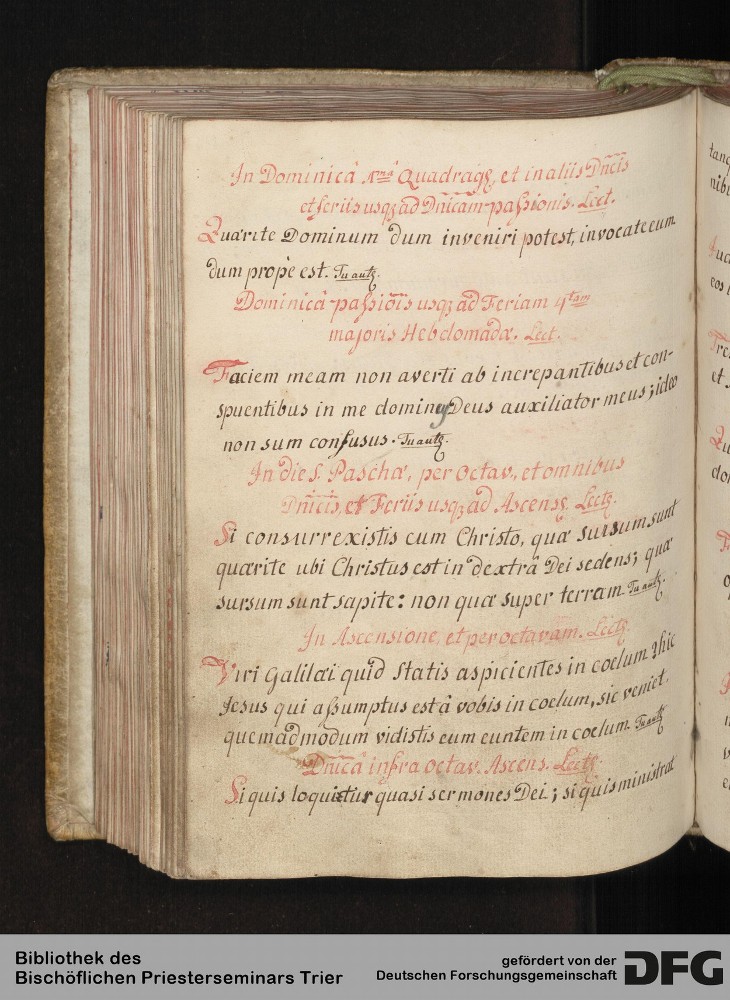 In Dominicâ 1mâ Quadragꝫ, et in aliis Dn̄cis
et feriis usqꝫ ad Dn̄icam passionis. Lect.
Quærite Dominum dum inveniri potest, invocate eum
dum propè est. Tu autꝫ.
Dominicâ passiōis usqꝫ ad Feriam 4tam
majoris Hebdomadæ. Lect.
Faciem meam non averti ab increpantibus et con-
spuentibus in me dominꝫ Deus auxiliator meus; ideo
non sum confusus. Tu autꝫ.
In die S. Paschæ, per Octav., et omnibus
Dn̄icis, et Feriis usqꝫ ad Ascensꝫ. Lectꝫ.
Si consurrexistis cum Christo, quæ sursum sunt
quærite ubi Christus est in dextrâ Dei sedens; quæ
sursum sunt sapite: non quæ super terram. Tu autꝫ.
In Ascensione, et per octavam. Lectꝫ.
Viri Galilæi quid statis aspicientes in coelum? hic
Jesus qui assumptus est â vobis in coelum, sic veniet,
quemadmodum vidistis eum euntem in coelum. Tu autꝫ
Dn̄icâ infra octav. Ascens. Lectꝫ.
Si quis loquitur quasi sermones Dei; si quis ministrat
tanq
nibu
eos
et
do
Bibliothek des
Bischöflichen Priesterseminars Trier
gefördert von der
Deutschen Forschungsgemeinschaft
DFG